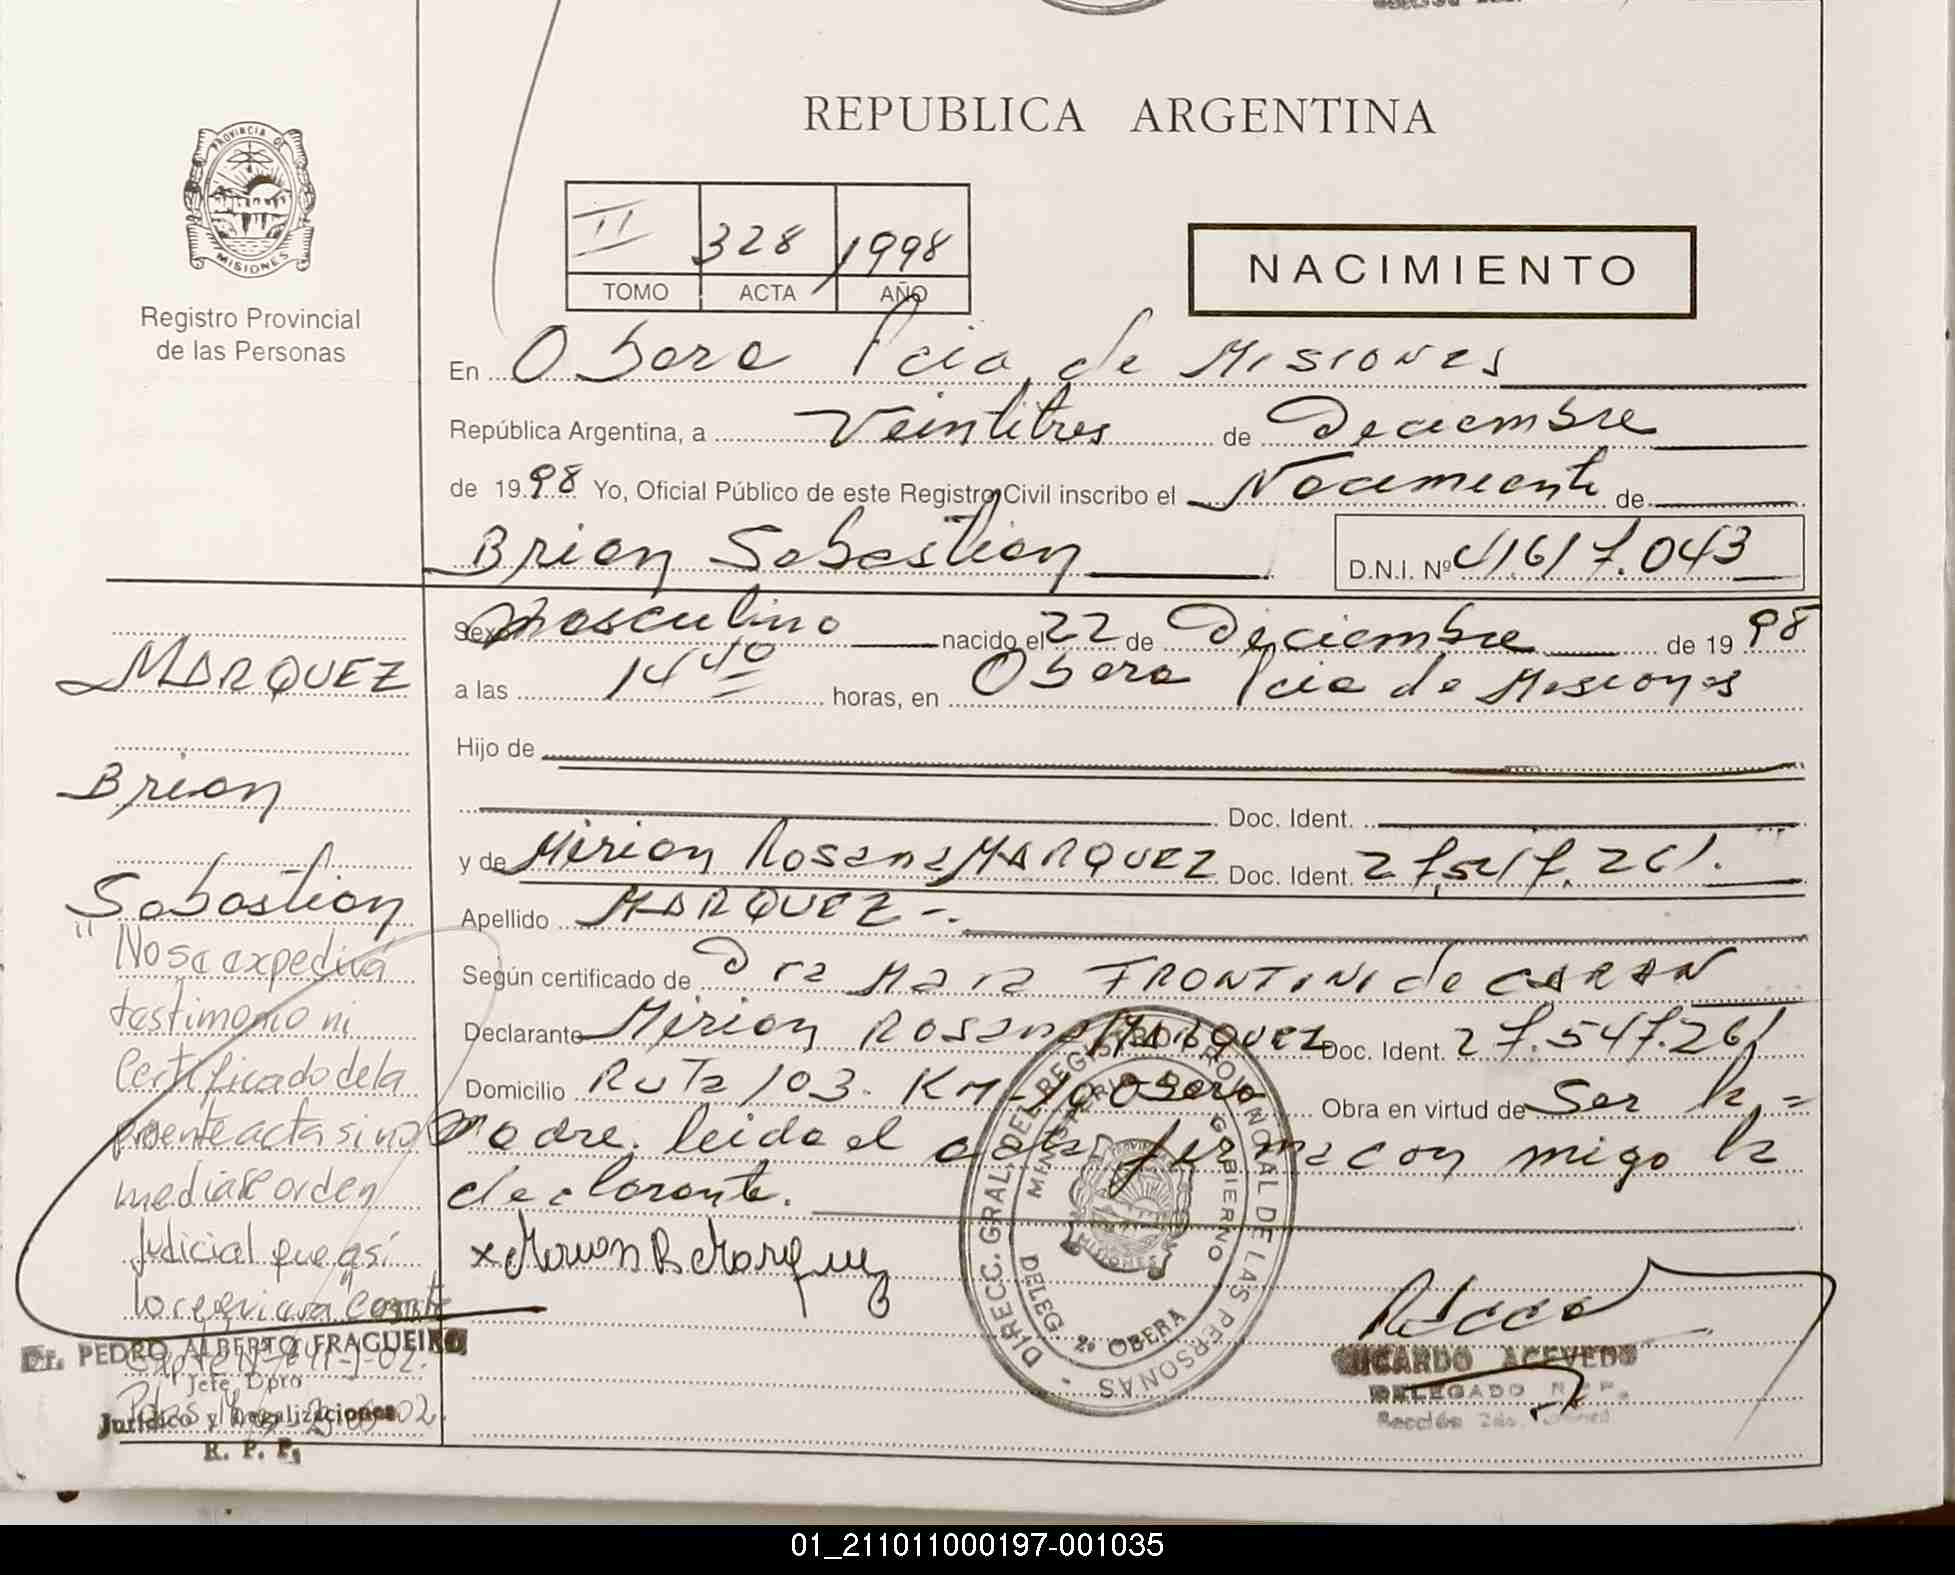 REPUBLICA ARGENTINA
PROVINCIA DE
MISIONES
Registro Provincial
de las Personas
II 328 1998
TOMO ACTA AÑO
NACIMIENTO
En Obera Pcia de Misiones
República Argentina, a Veintitres de Diciembre
de 1998 Yo, Oficial Público de este Registro Civil inscribo el Nacimiento de
Brian Sebastian D.N.I. Nº 41.617.043
Sexo Masculino nacido el 22 de Diciembre de 1998
a las 14 40 horas, en Obera Pcia de Misiones
Hijo de
Doc. Ident.
y de Mirian Rosana MARQUEZ Doc. Ident. 27.547.261.
Apellido MARQUEZ-.
Según certificado de Dra Mara FRONTINI de
Declarante Mirian Rosana MARQUEZ Doc. Ident. 27.547.261
Domicilio Ruta 103. Km Obera Obra en virtud de Ser la =
Madre. leida el acta firma con migo la
declarante.
x Mirian R Marquez
MARQUEZ
Brian
Sebastian
"No se expedirá
testimonio ni
Certificado de la
presente acta si no
mediare orden
Judicial que así
lo requiera"
Dr. PEDRO ALBERTO FRAGUEIRO
Jefe Dpto
Jurídico y Legalizaciones
R. P. P.
DIRECC. GRAL. DEL REGISTRO PROVINCIAL DE LAS PERSONAS
MINISTERIO DE GOBIERNO
MISIONES
DELEG. 2ª OBERA
RICARDO ACEVEDO
DELEGADO R. P. P.
Sección 2da.
01_211011000197-001035